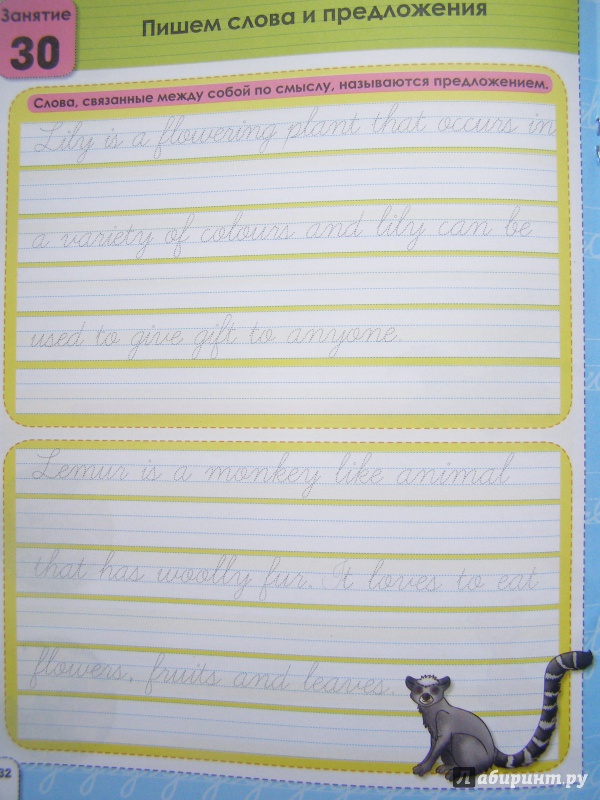 Занятие
30
Пишем слова и предложения
Слова, связанные между собой по смыслу, называются предложением.
Lily is a flowering plant that occurs in
a variety of colours and lily can be
used to give gift to anyone.
Lemur is a monkey like animal
that has woolly fur. It loves to eat
flowers, fruits and leaves.
32
Лабиринт.ру